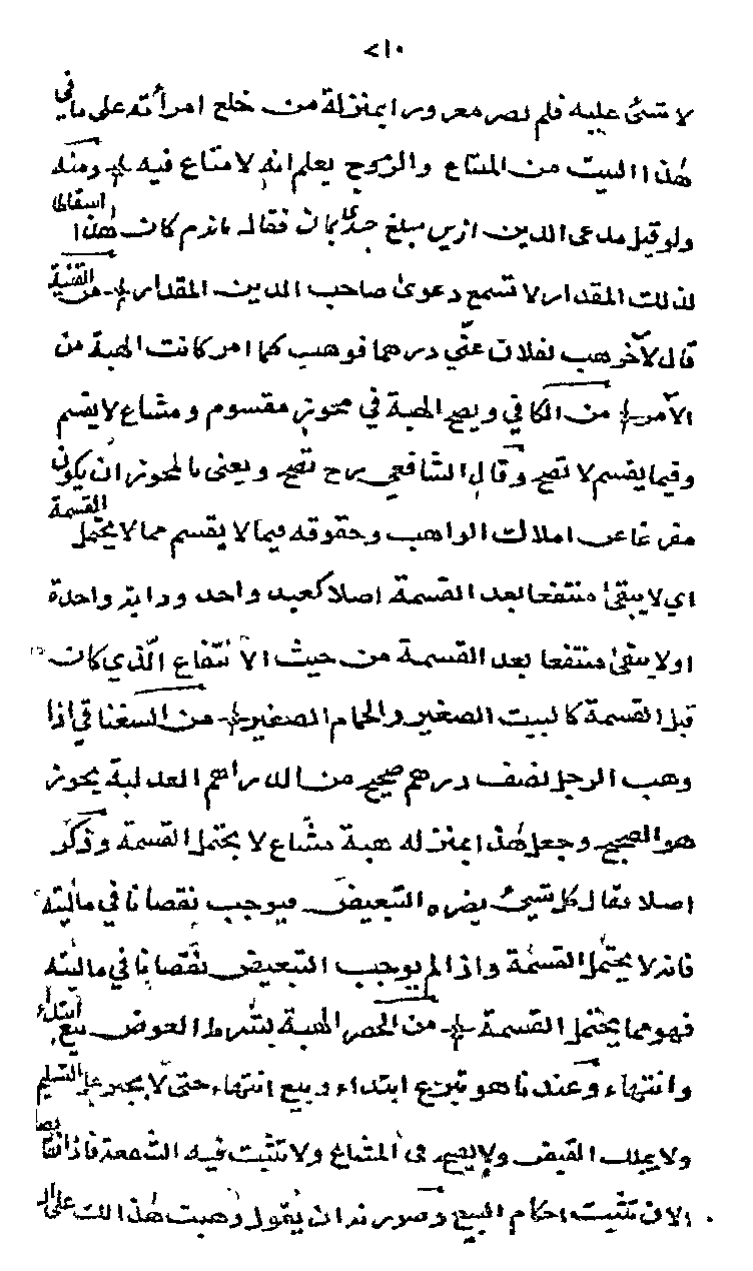 ٢١٠
لا شئ عليه فلم تصر معرورا بمنزلة من خلع امرأته على ما في
هذا البيت من المتاع والزوج يعلم انه لا متاع فيه ومنه
ولو قيل مدعى الدين ازين مبلغ جندين بمان فقال ماندم كان هذا اسقاطا
لذلك المقدار لا تسمع دعوى صاحب الدين المقدار من القنية
قال لآخر هب لفلان عنّي درهما فوهب كما امر كانت الهبة من
الآمر من الكافي ويصح الهبة في محوز مقسوم ومشاع لا يقسم
وفيما يقسم لا تصح وقال الشافعي رح تصح ويعنى بالمحوز ان يكون
مفرغا عن املاك الواهب وحقوقه فيما لا يقسم مما لا يحتمل القسمة
اي لا يبقى منتفعا بعد القسمة اصلا كعبد واحد ودابة واحدة
اولا يبقى منتفعا بعد القسمة من حيث الانتفاع الّذي كان
قبل القسمة كالبيت الصغير والحمام الصغير من السغناقي اذا
وهب الرجل نصف درهم صحيح من الدراهم العدلية يجوز
هو الصحيح وجعل هذا بمنزله هبة مشاع لا يحتمل القسمة وذكر
اصلا فقال كل شيئ يضره التبعيض فيوجب نقصانا في ماليته
فانه لا يحتمل القسمة واذا لم يوجب التبعيض نقصانا في ماليته
فهو مما يحتمل القسمة من الحصر الهبة بشرط العوض بيع ابتداء
وانتهاء وعندنا هو تبرع ابتداء وبيع انتهاء حتى لا يجبر على التسليم
ولا يملك القبض ولا يصح في المشاع ولا تثبت فيه الشفعة فاذا اتصا
الان تثبت احكام البيع وصورته ان يقول وهبت هذا لك على ال